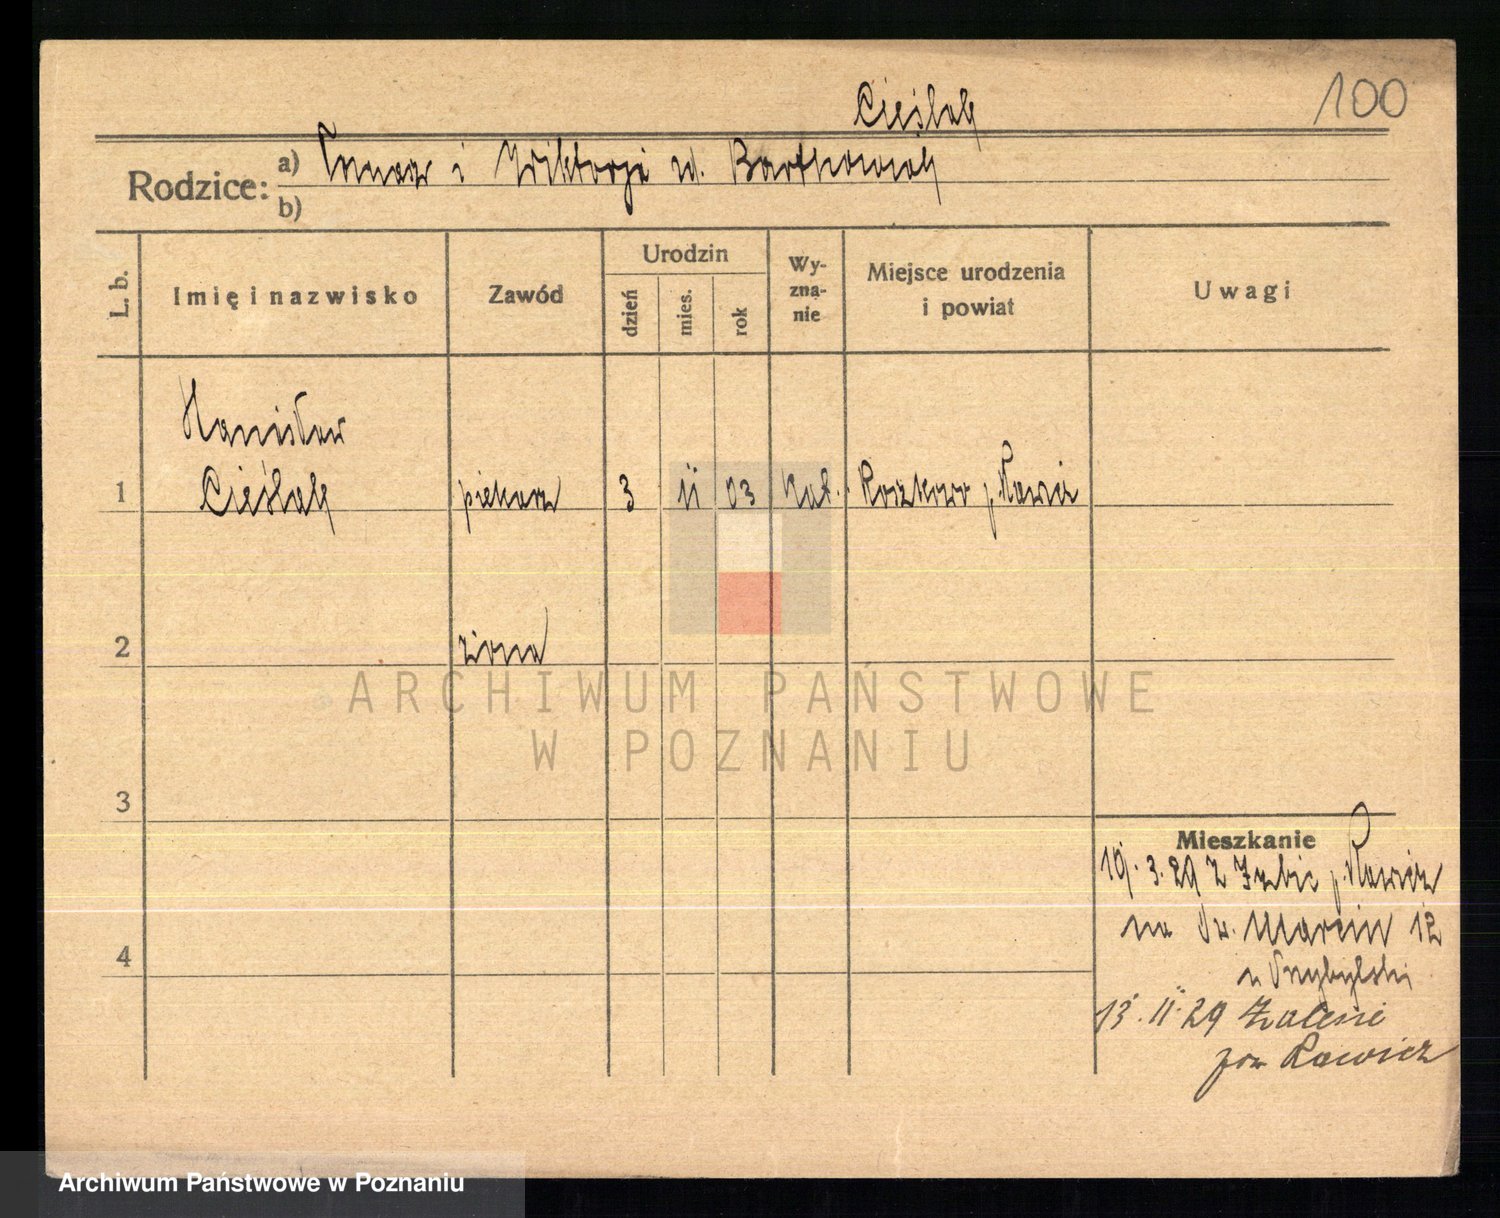 100
Cieślak
Rodzice: a) i Wiktorja
b)
L. b.
Imię i nazwisko
Zawód
Urodzin
dzień
mies.
rok
Wy-
zna-
nie
Miejsce urodzenia
i powiat
Uwagi
Stanisław
1 Cieślak piekarz 3 11 03 kat. Roszkowo p. Rawicz
2 żona
ARCHIWUM PAŃSTWOWE
W POZNANIU
3
Mieszkanie
3. 29 z p. Rawicz
na Św. Marcin 12
4
Przybylski
13. 11. 29 Zalesie
pow Rawicz
Archiwum Państwowe w Poznaniu